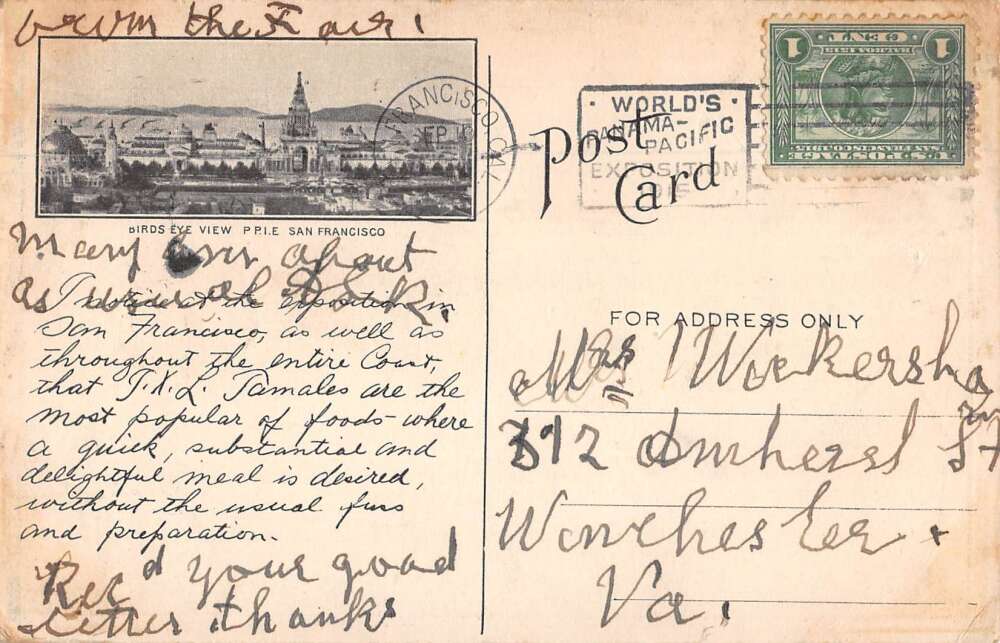 from the Fair!
BIRDS EYE VIEW P.P.I.E SAN FRANCISCO
Mary over about
as usual
I noticed at the exposition in
San Francisco, as well as
throughout the entire Coast,
that I.X.L. Tamales are the
most popular of foods where
a quick, substantial and
delightful meal is desired,
without the usual fuss
and preparation.
Rec'd your good
letter thanks
FRANCISCO, CAL.
SEP
WORLD'S
PANAMA-
PACIFIC
EXPOSITION
1915
Post
Card
1 CENT 1
BALBOA 1513
U.S. POSTAGE
SAN FRANCISCO 1915
FOR ADDRESS ONLY
Mrs Wickersham
312 Amherst St
Winchester
Va.